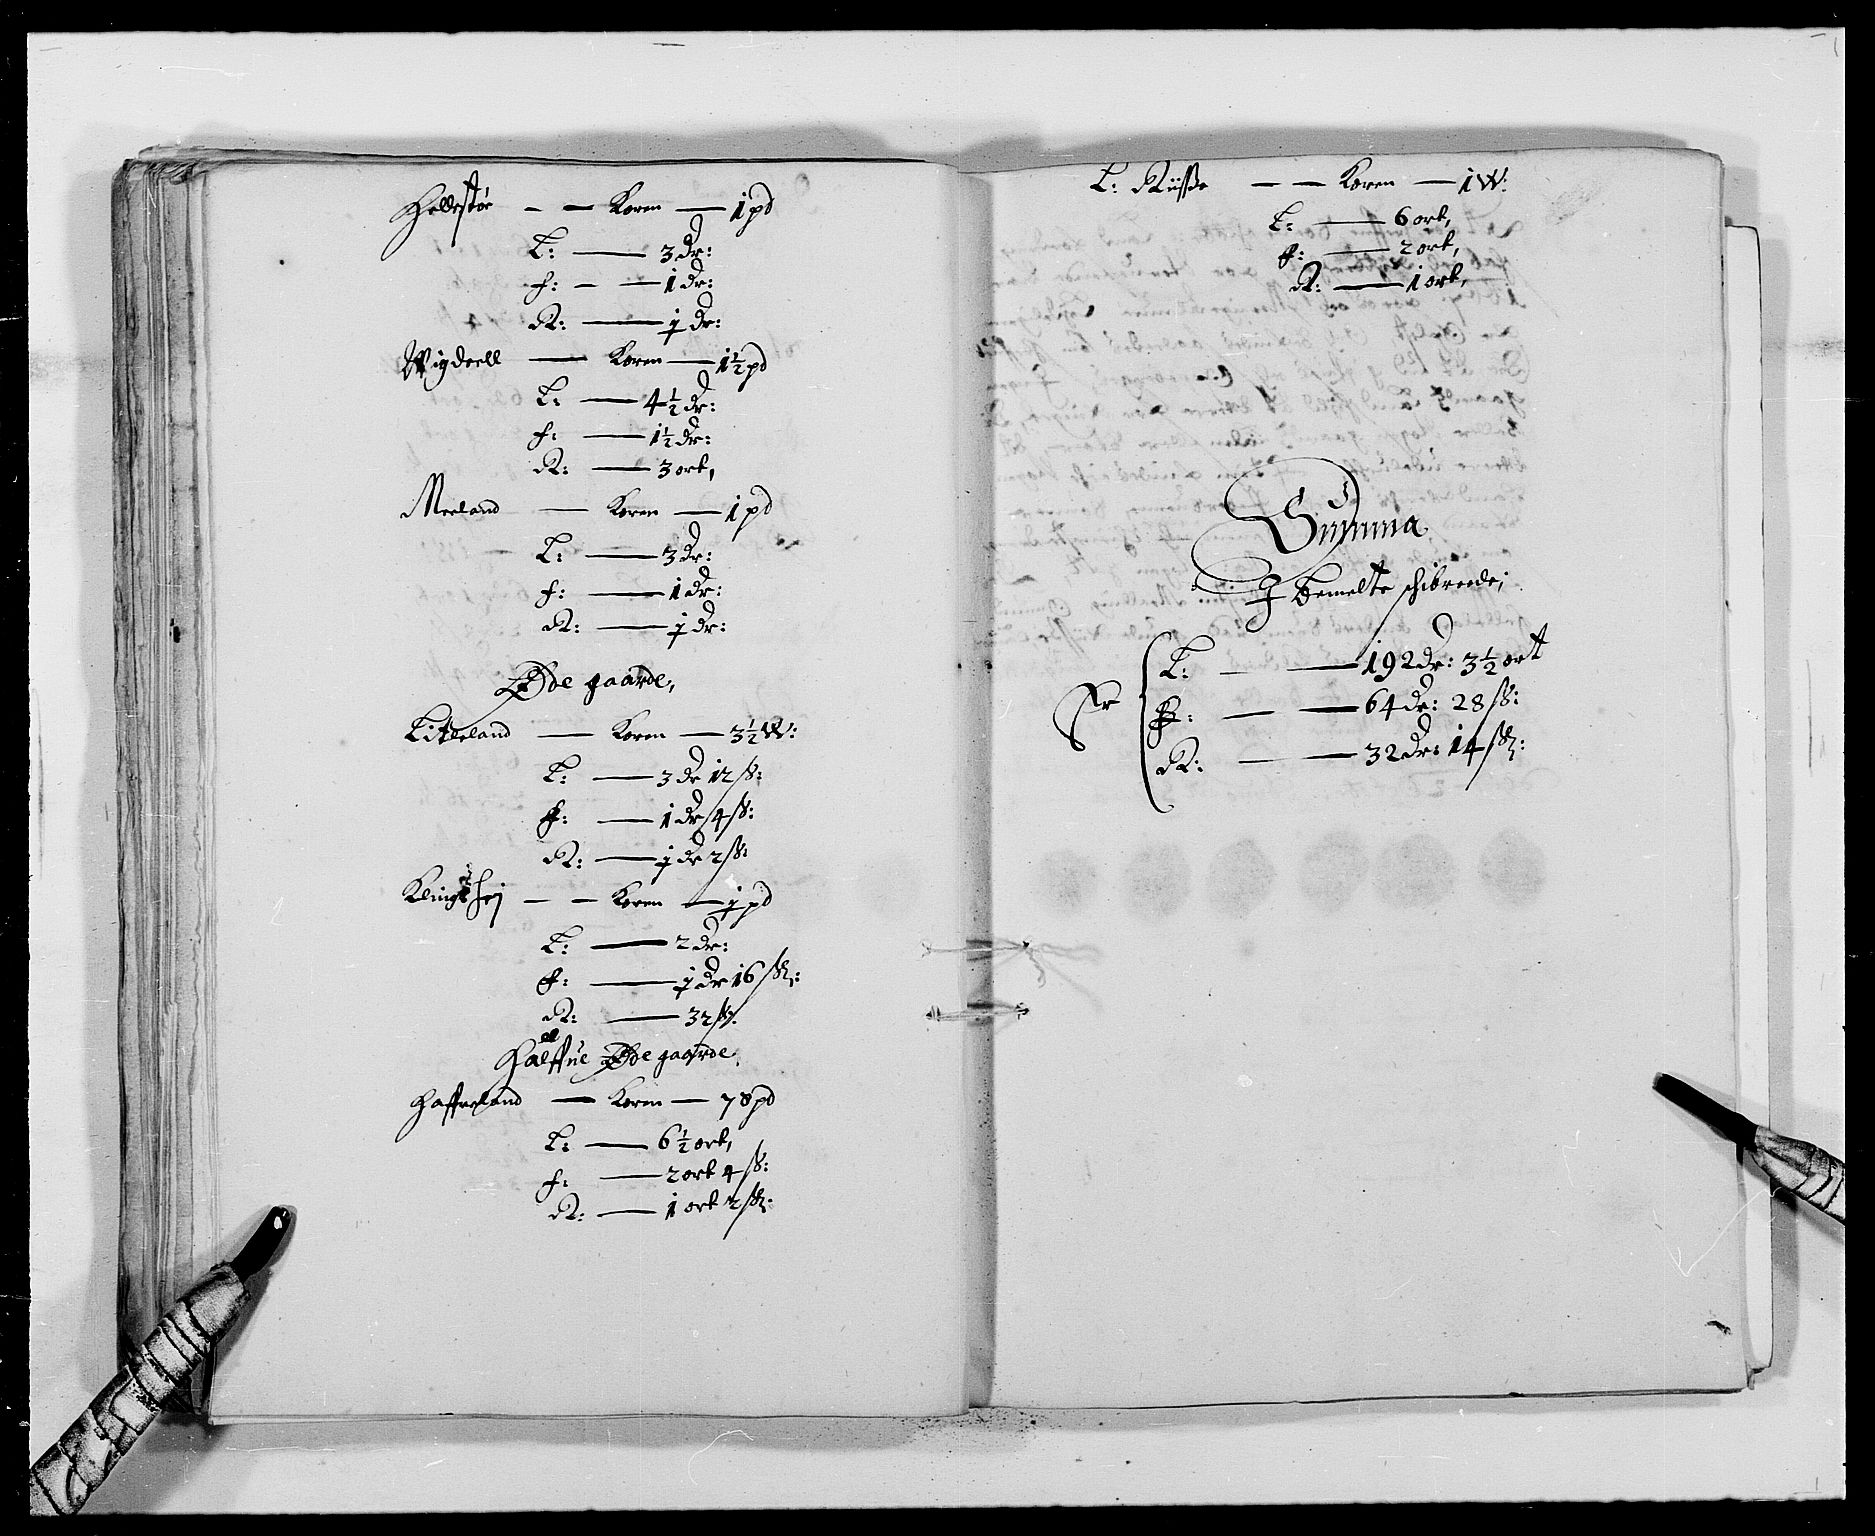 Hellestør — — Koren — 1 pd
L: — 3 dr:
f: — — 1 dr:
R: — ½ dr:
Wigdeell — Koren — 1½ pd
L: — 4½ dr:
f: — 1½ dr:
R: — 3 ort,
Meeland — Koren — 1 pd
L: — 3 dr:
f: — 1 dr:
R: — ½ dr:
Øde gaarde,
Litleland — Koren — 3½ W:
L: — 3 dr 12 ß:
f: — 1 dr 4 ß:
R: — ½ dr 2 ß:
— — Koren — ½ pd
L: — 2 dr:
f: — ½ dr 16 ß:
R: — 32 ß:
Halffue Øde gaarde,
Haffueland — Koren — 78 pd
L: — 6½ ort,
f: — 2 ort 4 ß:
R: — 1 ort 2 ß:
L: Riisße — — Koren — 1 W:
L: — 6 ort,
f: — 2 ort,
R: — 1 ort,
Summa
J bemelte schibreede;
Er
L: — — 192 dr: 3½ ort
f: — — 64 dr: 28 ß:
R: — — 32 dr: 14 ß: